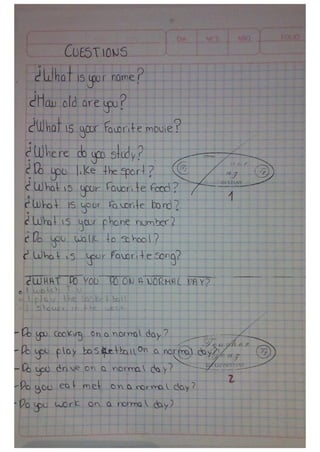 DIA MES AÑO FOLIO
CUESTIONS
¿What is your name?
¿How old are you?
¿What is your Favorite movie?
¿Where do you study?
¿Do you like the sport?
¿What is your Favorite Food?
1
¿What is your Favorite band?
¿What is your phone number?
¿Do you walk to school?
¿What is your Favorite song?
¿WHAT DO YOU DO ON A NORMAL DAY?
I watch T.V
I play the basketball
I shower in the
-Do you cooking on a normal day?
-Do you play basketball on a normal day?
Teacher
-Do you drive on a normal day?
2
-Do you eat met on a normal day?
-Do you work on a normal day?